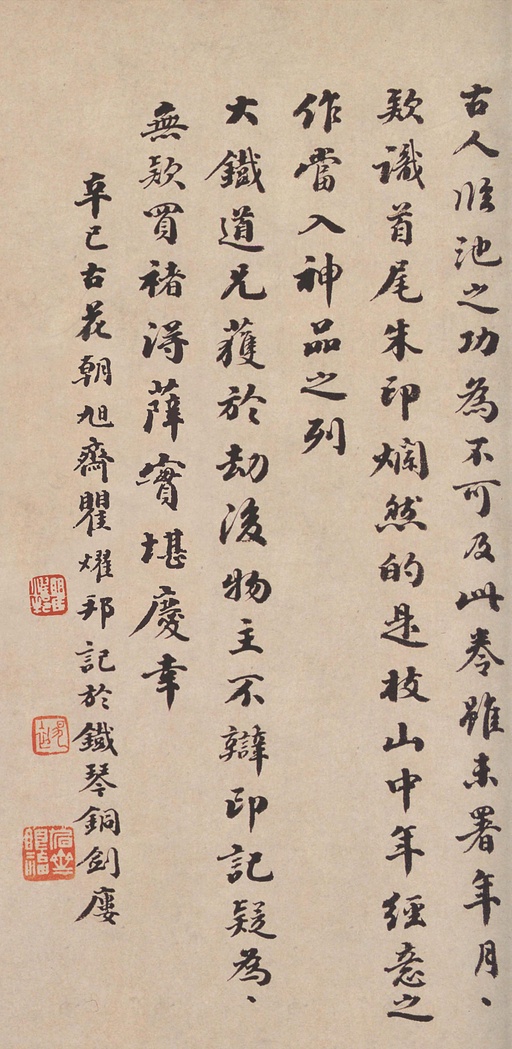 古人臨池之功為不可及此卷雖未署年月、
欵識首尾朱印爛然的是枝山中年經意之
作當入神品之列
大鐵道兄獲於劫後物主不辯印記疑為、
無欵買褚得薛實堪慶幸
辛巳古花朝旭齋瞿燿邦記於鐵琴銅劍廔